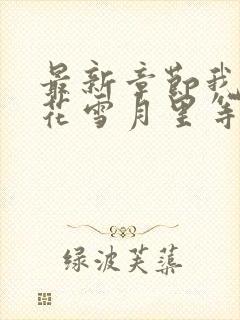 最新章节我
花雪月里等
绿波芙蕖